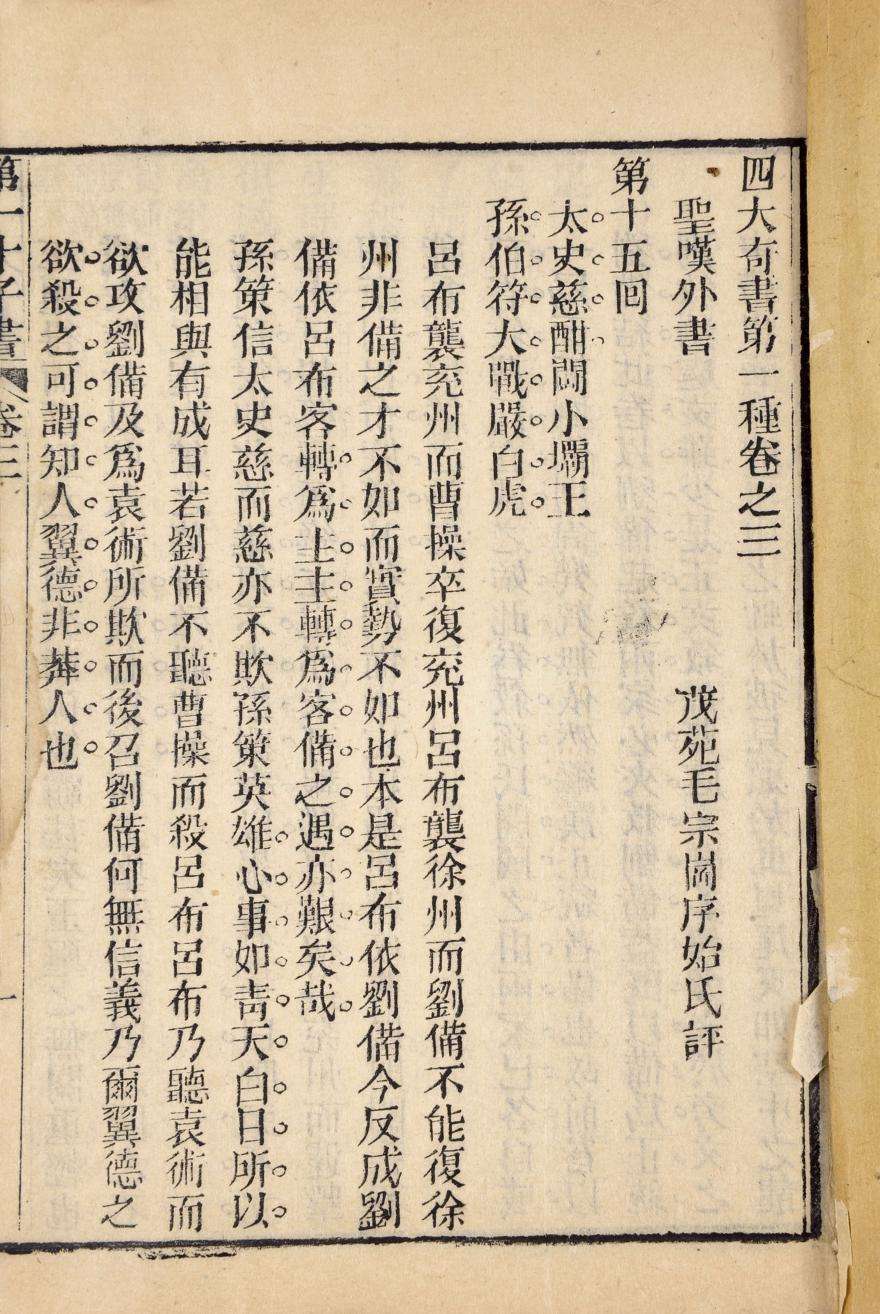 四大奇書第一種卷之三
聖嘆外書
茂苑毛宗崗序始氏評
第十五回
太史慈酣鬪小霸王
孫伯符大戰嚴白虎
呂布襲兗州而曹操卒復兗州呂布襲徐州而劉備不能復徐
州非備之才不如而實勢不如也本是呂布依劉備今反成劉
備依呂布客轉爲主主轉爲客備之遇亦艱矣哉
孫策信太史慈而慈亦不欺孫策英雄心事如靑天白日所以
能相與有成耳若劉備不聽曹操而殺呂布呂布乃聽袁術而
欲攻劉備及爲袁術所欺而後召劉備何無信義乃爾翼德之
欲殺之可謂知人翼德非莽人也
第一才子書
卷三
一